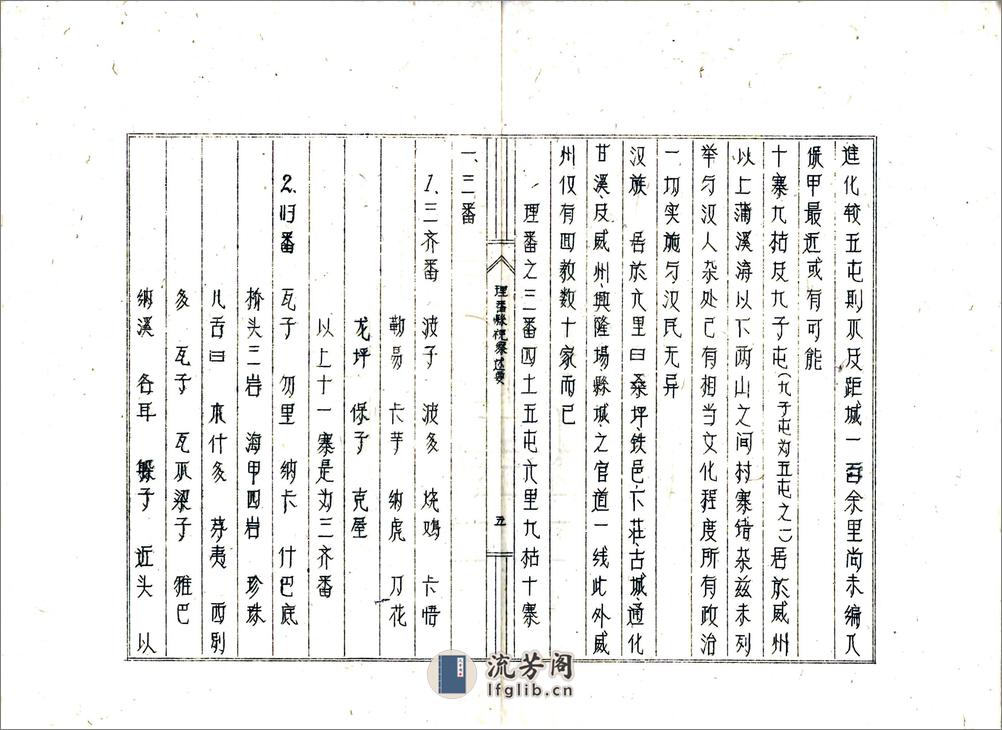 進化较五屯则不及距城一百余里尚未編入
保甲最近或有可能
十寨九枯及九子屯(九子屯为五屯之一)居於威州
以上蒲溪溝以下两山之间村寨错杂兹未列
举与汉人杂处已有相当文化程度所有政治
一切实施与汉民无异
汉族　居於六里曰桑坪、铁邑、下莊、古城、通化
甘溪、及威州、興隆場縣城、之官道一线此外威
州仅有回教数十家而已
理番之三番四土五屯六里九枯十寨
理番縣視察述要
五
一、三番
1、三齐番　波子　波多　烧鸡　卡悟
勒易　卡芋　纳虎　刀花
龙坪　保子　克屋
以上十一寨是为三齐番
2、归番　瓦子　勿里　纳卡　什巴底
桥头三岩　海甲四岩　珍珠
儿舌曰　木什多　芽夷　西别
多　瓦子　瓦不梁子　雅巴
纳溪　各耳　子　近头　以
流芳阁
lfglib.cn